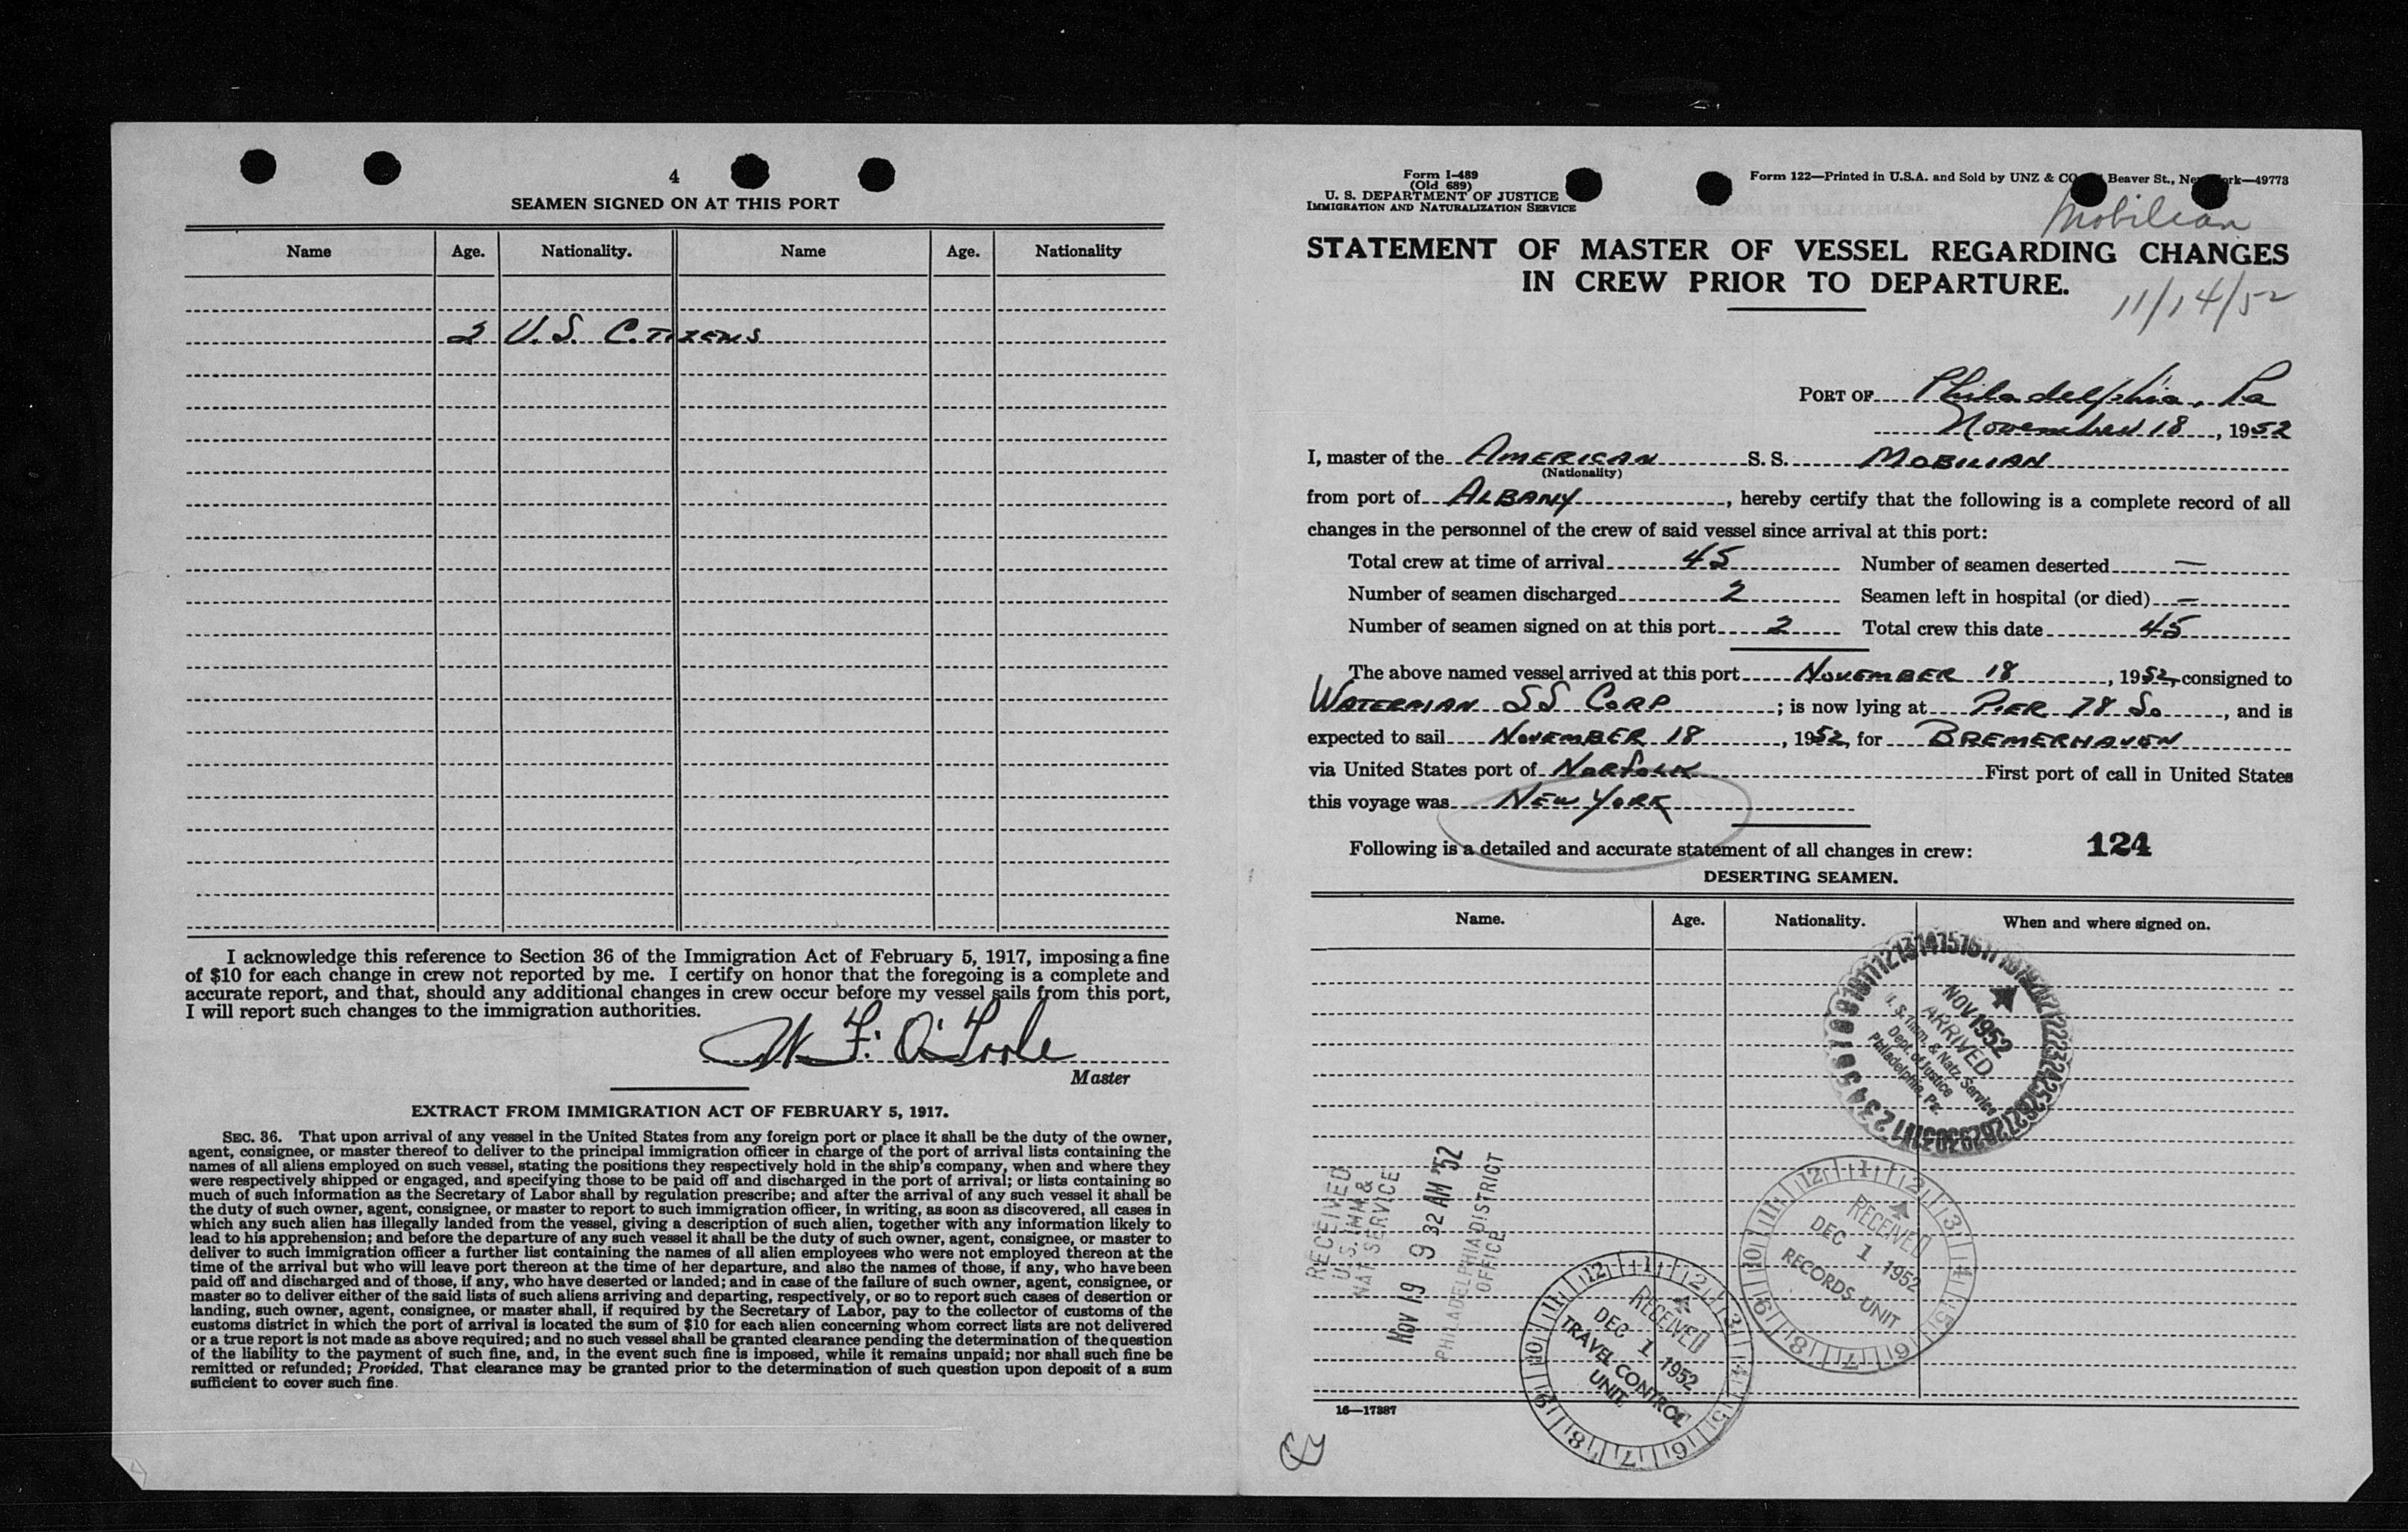 4
SEAMEN SIGNED ON AT THIS PORT
Name Age. Nationality. Name Age. Nationality
2 U. S. CITIZENS
I acknowledge this reference to Section 36 of the Immigration Act of February 5, 1917, imposing a fine
of $10 for each change in crew not reported by me. I certify on honor that the foregoing is a complete and
accurate report, and that, should any additional changes in crew occur before my vessel sails from this port,
I will report such changes to the immigration authorities.
W F. O'Toole
Master
EXTRACT FROM IMMIGRATION ACT OF FEBRUARY 5, 1917.
SEC. 36. That upon arrival of any vessel in the United States from any foreign port or place it shall be the duty of the owner,
agent, consignee, or master thereof to deliver to the principal immigration officer in charge of the port of arrival lists containing the
names of all aliens employed on such vessel, stating the positions they respectively hold in the ship's company, when and where they
were respectively shipped or engaged, and specifying those to be paid off and discharged in the port of arrival; or lists containing so
much of such information as the Secretary of Labor shall by regulation prescribe; and after the arrival of any such vessel it shall be
the duty of such owner, agent, consignee, or master to report to such immigration officer, in writing, as soon as discovered, all cases in
which any such alien has illegally landed from the vessel, giving a description of such alien, together with any information likely to
lead to his apprehension; and before the departure of any such vessel it shall be the duty of such owner, agent, consignee, or master to
deliver to such immigration officer a further list containing the names of all alien employees who were not employed thereon at the
time of the arrival but who will leave port thereon at the time of her departure, and also the names of those, if any, who have been
paid off and discharged and of those, if any, who have deserted or landed; and in case of the failure of such owner, agent, consignee, or
master so to deliver either of the said lists of such aliens arriving and departing, respectively, or so to report such cases of desertion or
landing, such owner, agent, consignee, or master shall, if required by the Secretary of Labor, pay to the collector of customs of the
customs district in which the port of arrival is located the sum of $10 for each alien concerning whom correct lists are not delivered
or a true report is not made as above required; and no such vessel shall be granted clearance pending the determination of the question
of the liability to the payment of such fine, and, in the event such fine is imposed, while it remains unpaid; nor shall such fine be
remitted or refunded; Provided, That clearance may be granted prior to the determination of such question upon deposit of a sum
sufficient to cover such fine.
Form I-489
(Old 689)
U. S. DEPARTMENT OF JUSTICE
IMMIGRATION AND NATURALIZATION SERVICE
Form 122—Printed in U.S.A. and Sold by UNZ & CO Beaver St., New York—49773
Mobilean
STATEMENT OF MASTER OF VESSEL REGARDING CHANGES
IN CREW PRIOR TO DEPARTURE.
11/14/52
PORT OF Philadelphia, Pa
November 18, 1952
I, master of the AMERICAN S. S. MOBILIAN
(Nationality)
from port of ALBANY, hereby certify that the following is a complete record of all
changes in the personnel of the crew of said vessel since arrival at this port:
Total crew at time of arrival 45 Number of seamen deserted —
Number of seamen discharged 2 Seamen left in hospital (or died) —
Number of seamen signed on at this port 2 Total crew this date 45
The above named vessel arrived at this port NOVEMBER 18, 1952, consigned to
WATERMAN SS CORP; is now lying at PIER 78 So, and is
expected to sail NOVEMBER 18, 1952, for BREMERHAVEN
via United States port of NORFOLK First port of call in United States
this voyage was NEW YORK
Following is a detailed and accurate statement of all changes in crew: 124
DESERTING SEAMEN.
Name. Age. Nationality. When and where signed on.
NOV 1952
ARRIVED
U. S. Imm. & Natz. Service
Dept. of Justice
Philadelphia, Pa.
RECEIVED
U.S. IMM &
NAT SERVICE
NOV 19 9 32 AM '52
PHILADELPHIA DISTRICT
OFFICE
RECEIVED
DEC 1 1952
TRAVEL CONTROL
UNIT
RECEIVED
DEC 1 1952
RECORDS UNIT
16—17387